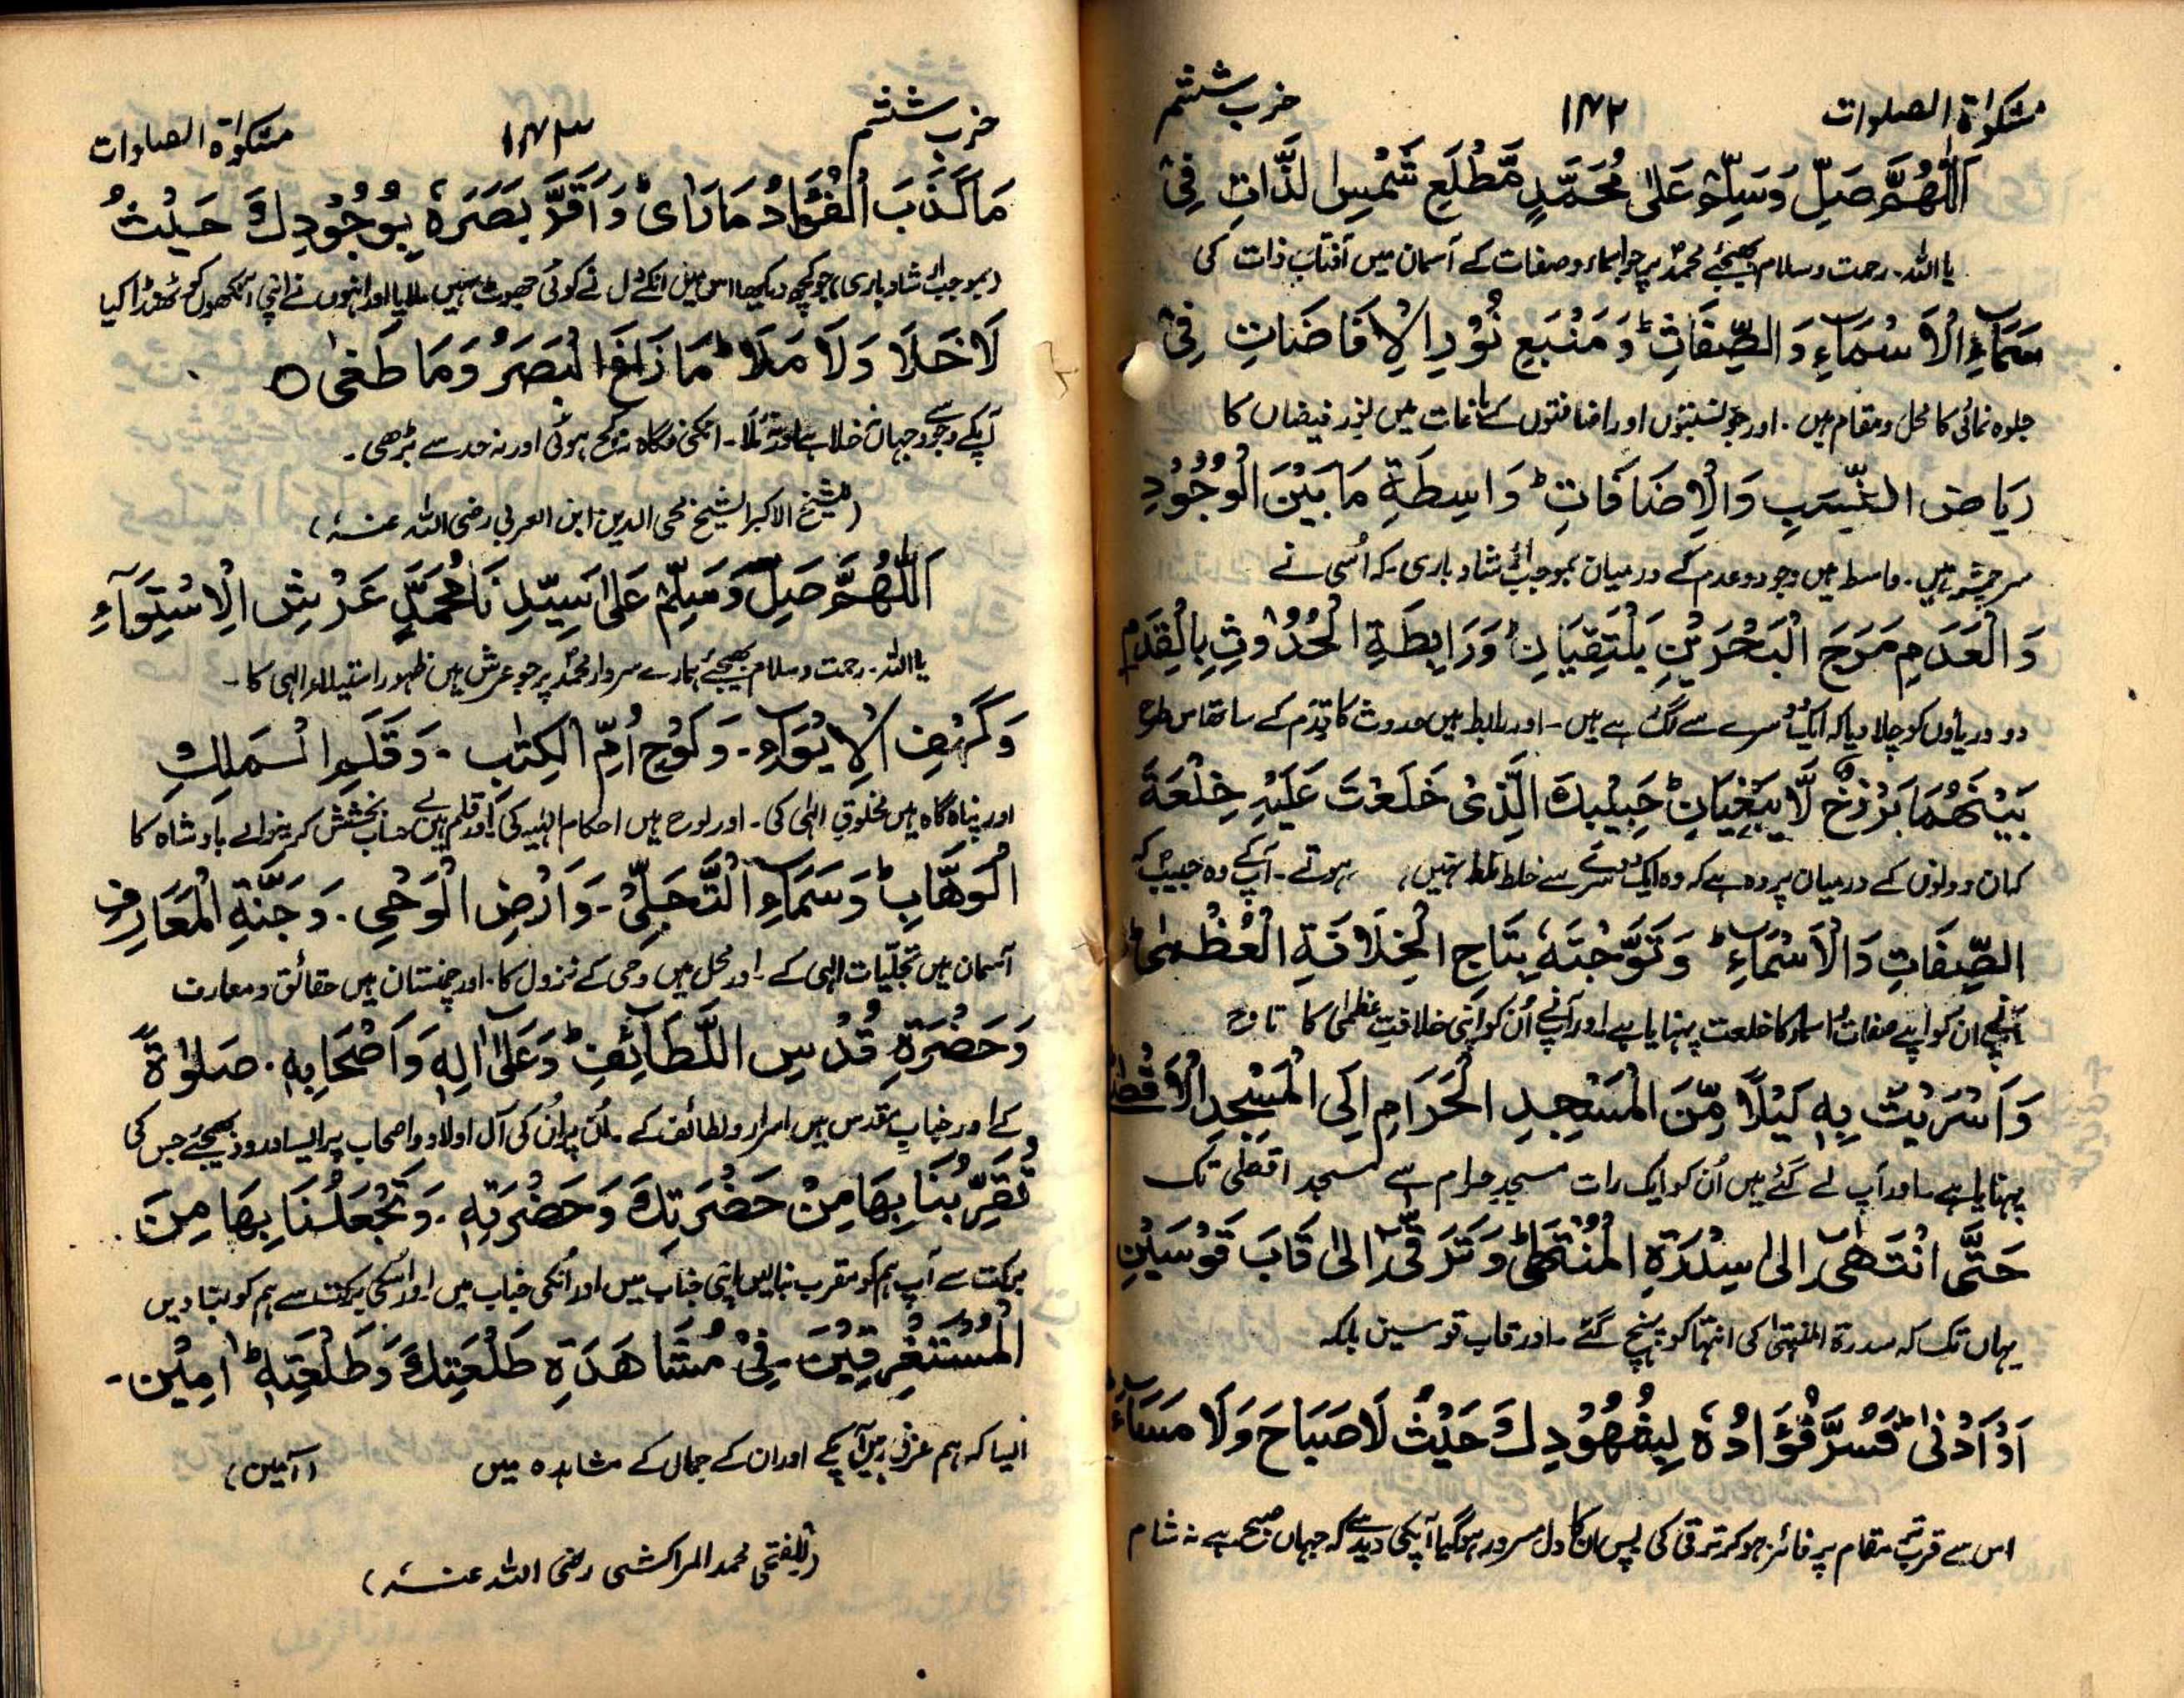 مشکوٰۃ الصلوات ۱۴۲ حزب ششتم
اَللّٰهُمَّ صَلِّ وَسَلِّمْ عَلٰی مُحَمَّدٍ مَّطْلَعِ شَمْسِ لذَّاتِ فِیْ
یا اللہ۔ رحمت و سلام بھیجئے محمدؐ پر جو اسماء و صفات کے آسمان میں آفتاب ذات کی
سَمَآءِ الْاَسْمَآءِ وَ الصِّفَاتِ ؕ وَ مَنْبَعِ نُوْرِ الْاِفَاضَاتِ فِیْ
جلوہ نمائی کا محل و مقام ہیں۔ اور جو نسبتوں اور اضافتوں کے باغات میں نور فیضان کا
رِیَاضِ النِّسَبِ وَالْاِضَافَاتِ ؕ وَاسِطَةِ مَا بَیْنَ الْوُجُوْدِ
سرچشمہ ہیں۔ واسطہ ہیں وجود و عدم کے درمیان بموجب ارشاد باری کہ اُسی نے
وَ الْعَدَمِ مَرَجَ الْبَحْرَیْنِ یَلْتَقِیَانِ وَرَابِطَةِ الْحُدُوْثِ بِالْقِدَمِ
دو دریاؤں کو چلا دیا کہ ایک دوسرے سے لگے ہے ہیں۔ اور رابطہ ہیں حدوث کا قِدَم کے ساتھ اس طرح
بَیْنَهُمَا بَرْزَخٌ لَّا یَبْغِیَانِ ؕ حَبِیْبِكَ الَّذِیْ خَلَعْتَ عَلَیْهِ خِلْعَةَ
کہ ان دونوں کے درمیان پردہ ہے کہ وہ ایک دوسرے سے خلط ملط نہیں ہوتے۔ آپ کے وہ حبیب کہ
الصِّفَاتِ وَالْاَسْمَآءِ ؕ وَ تَوَّجْتَهٗ بِتَاجِ الْخِلَافَةِ الْعُظْمٰی ؕ
آپنے ان کو اپنے صفات و اسماء کا خلعت پہنایا ہے اور آپنے اُن کو اپنی خلافتِ عظمٰی کا تاج
وَاَسْرَیْتَ بِهٖ لَیْلًا مِّنَ الْمَسْجِدِ الْحَرَامِ اِلَی الْمَسْجِدِ الْاَقْصٰی
پہنایا ہے۔ اور آپ لے گئے ہیں اُن کو ایک رات مسجدِ حرام سے مسجد اقصٰی تک
حَتَّی انْتَهٰی اِلٰی سِدْرَةِ الْمُنْتَهٰی ؕ وَ تَرَقّٰی اِلٰی قَابَ قَوْسَیْنِ
یہاں تک کہ سدرۃ المنتہیٰ کی انتہا کو پہنچ گئے۔ اور قاب قوسین بلکہ
اَوْ اَدْنٰی ؕ فَسُرَّ فُؤَادُهٗ بِشُهُوْدِكَ حَیْثُ لَا صَبَاحَ وَلَا مَسَآءَ
اس سے قریب تر مقام پر فائز ہو کر ترقی کی پس ان کا دل مسرور ہو گیا آپکی دید سے کہ جہاں صبح ہے نہ شام
حزب ششتم ۱۴۳ مشکوٰۃ الصلوات
مَا كَذَبَ الْفُؤَادُ مَا رَاٰی ؕ وَ اَقَرَّ بَصَرَهٗ بِوُجُوْدِكَ حَیْثُ
(بموجب ارشاد باری) جو کچھ دیکھا اس میں انکے دل نے کوئی جھوٹ نہیں ملایا اور انہوں نے اپنی آنکھوں کو ٹھنڈا کیا
لَا خَلَا وَ لَا مَلَا ؕ مَا زَاغَ الْبَصَرُ وَ مَا طَغٰی ○
آپکے وجود سے جہاں نہ خلا ہے اور نہ ملَا۔ انکی نگاہ نہ کج ہوئی اور نہ حد سے بڑھی۔
(للشیخ الاکبر الشیخ محی الدین ابن العربی رضی اللہ عنہٗ)
اَللّٰهُمَّ صَلِّ وَسَلِّمْ عَلٰی سَیِّدِ نَا مُحَمَّدٍ عَرْشِ الْاِسْتِوَآءِ
یا اللہ۔ رحمت و سلام بھیجئے ہمارے سردار محمدؐ پر جو عرش ہیں ظہور استیلاء الہی کا۔
وَ كَهْفِ الْاِیْوَآءِ۔ وَ لَوْحِ اُمِّ الْكِتٰبِ۔ وَ قَلَمِ الْمَلِكِ
اور پناہ گاہ ہیں مخلوقِ الٰہی کی۔ اور لوح ہیں احکام الٰہیہ کی اور قلم ہیں بے حساب بخشش کرنیوالے بادشاہ کا
الْوَهَّابِ ؕ وَ سَمَآءِ التَّجَلِّیْ۔ وَ اَرْضِ الْوَحْیِ۔ وَ جَنَّةِ الْمَعَارِفِ
آسمان ہیں تجلّیات الہی کے۔ اور محل ہیں وحی کے نزول کا۔ اور چمنستان ہیں حقائق و معارف
وَ حَضْرَةِ قُدْسِ اللَّطَآئِفِ ؕ وَ عَلٰی اٰلِهٖ وَ اَصْحَابِهٖ۔ صَلٰوةً
کے اور جنابِ مقدس ہیں اسرار و لطائف کے۔ اُن پر اُن کی آل اولاد و اصحاب پر ایسا درود بھیجئے جس کی
تُقَرِّبُنَا بِهَا مِنْ حَضْرَتِكَ وَ حَضْرَتِهٖ۔ وَ تَجْعَلُنَا بِهَا مِنَ
برکت سے آپ ہم کو مقرب بنا لیں اپنی جناب میں اور اُنکی جناب میں۔ اور اسکی برکت سے ہم کو بنا دیں
الْمُسْتَغْرِقِیْنَ فِیْ مُشَاهَدَةِ طَلْعَتِكَ وَ طَلْعَتِهٖ ؕ اٰمِیْن۔
ایسا کہ ہم غرق رہیں آپکے اور ان کے جمال کے مشاہدہ میں (آمین)
(للفتی محمد المراکشی رضی اللہ عنہٗ)